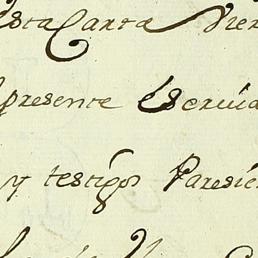 esta Carta Vier
presente Escriua
y testigos Paresie